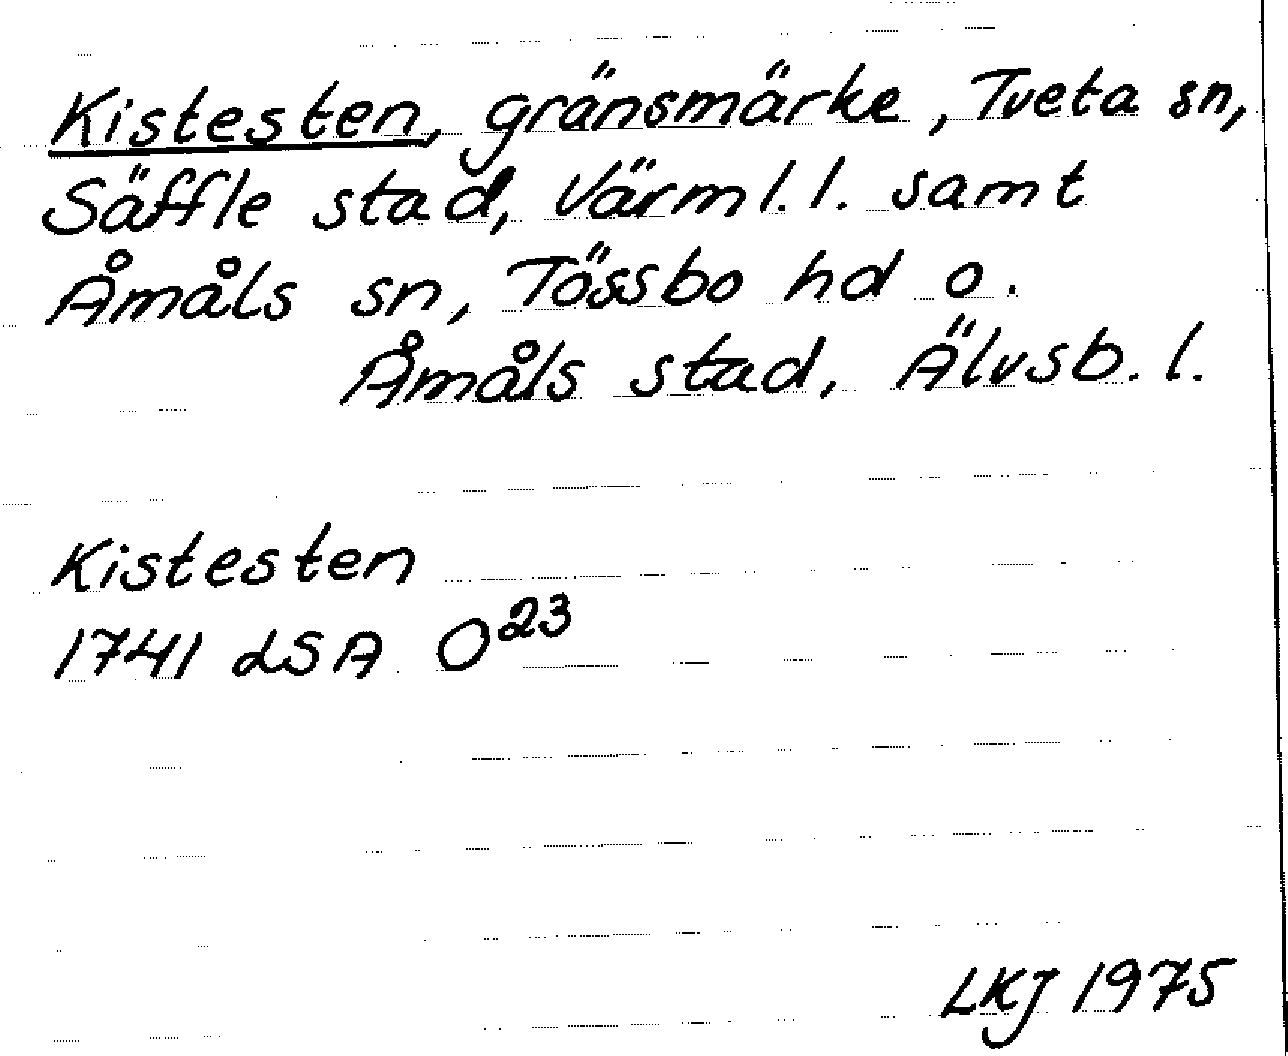 Kistesten, gränsmärke, Tveta sn,
Säffle stad, Värml. l. samt
Åmåls sn, Tössbo hd o.
Åmåls stad, Älvsb. l.
Kistesten
1741 LSA O²³
LKJ 1975